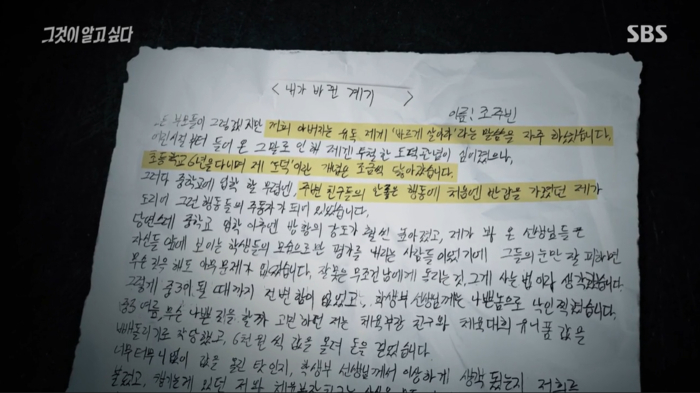 그것이 알고싶다
SBS
< 내가 바뀐 계기 >
이름: 조주빈
부모들이 그렇겠지만 저희 아버지는 유독 제게 '바르게 살아라'라는 말씀을 자주 하셨습니다.
어린시절부터 들어 온 그 말로 인해 제겐 무척 한 도덕관념이 심어졌으나,
초등학교 6년을 다니며 제 '도덕'이란 개념은 조금씩 닳아갔습니다.
그러다 중학교에 입학 할 무렵엔, 주변 친구들의 안좋은 행동에 처음엔 반감을 가졌던 제가
도리어 그런 행동들의 주동자가 되어 있었습니다.
당연스레 중학교 입학 이후엔 방황의 강도가 훨씬 높아졌고, 제가 봐 온 선생님들은
자신들 앞에 보이는 학생들의 모습으로만 평가를 내리는 사람들이었기에 그들의 눈만 잘 피하면
무슨 짓을 해도 아무 문제가 없었습니다. 잘못은 무조건 남에게 돌리는 것, 그게 사는 법이라 생각했습니다.
그렇게 중3이 될 때까지 전 변함이 없었고, 학생부 선생님께는 나쁜놈으로 낙인 찍혔습니다.
중3 여름, 무슨 나쁜 짓을 할까 고민하던 저는 체육부장 친구와 체육대회 유니폼 값을
빼돌리기로 작당했고, 6천원씩 값을 올려 돈을 걷었습니다.
너무 터무니없이 값을 올린 탓인지, 학생부 선생님께서 이상하게 생각 됐는지 저희를
불렀고, 챙기는게 있던 저와 체육부장